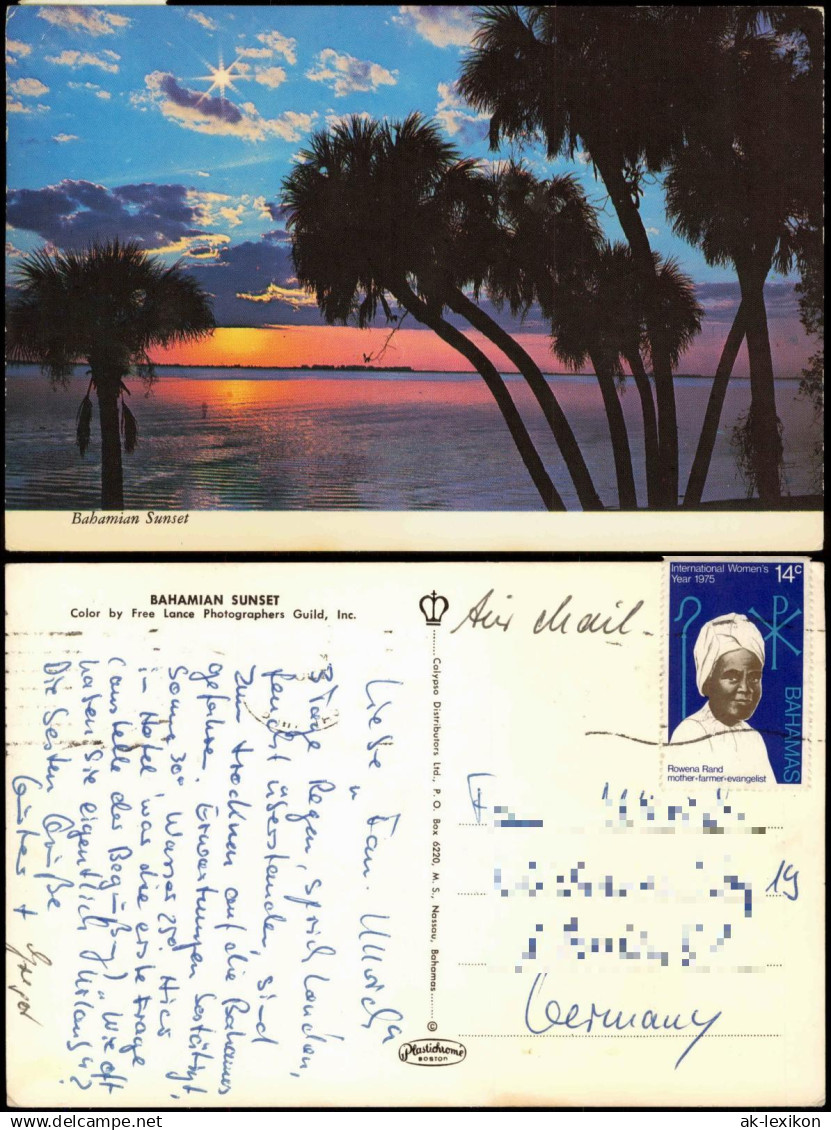 Bahamian Sunset
BAHAMIAN SUNSET
Color by Free Lance Photographers Guild, Inc.
Liebe Fam. Ullrich
3 Tage Regen, sprich London,
feucht überstanden, sind
zum trocknen auf die Bahamas
gefahren. Erwartungen bestätigt,
Sonne 30° Wasser 25°! Hier
im Hotel war die erste Frage
(anstelle der Begrüßung) "Wie oft
haben Sie eigentlich Urlaub"?
Die besten Grüße
Günter +
Calypso Distributors Ltd., P. O. Box 6220, M. S., Nassau, Bahamas
©
Plastichrome
BOSTON
Air Mail
International Women's
Year 1975
14c
BAHAMAS
Rowena Rand
mother-farmer-evangelist
19
Germany
www.delcampe.net
ak-lexikon